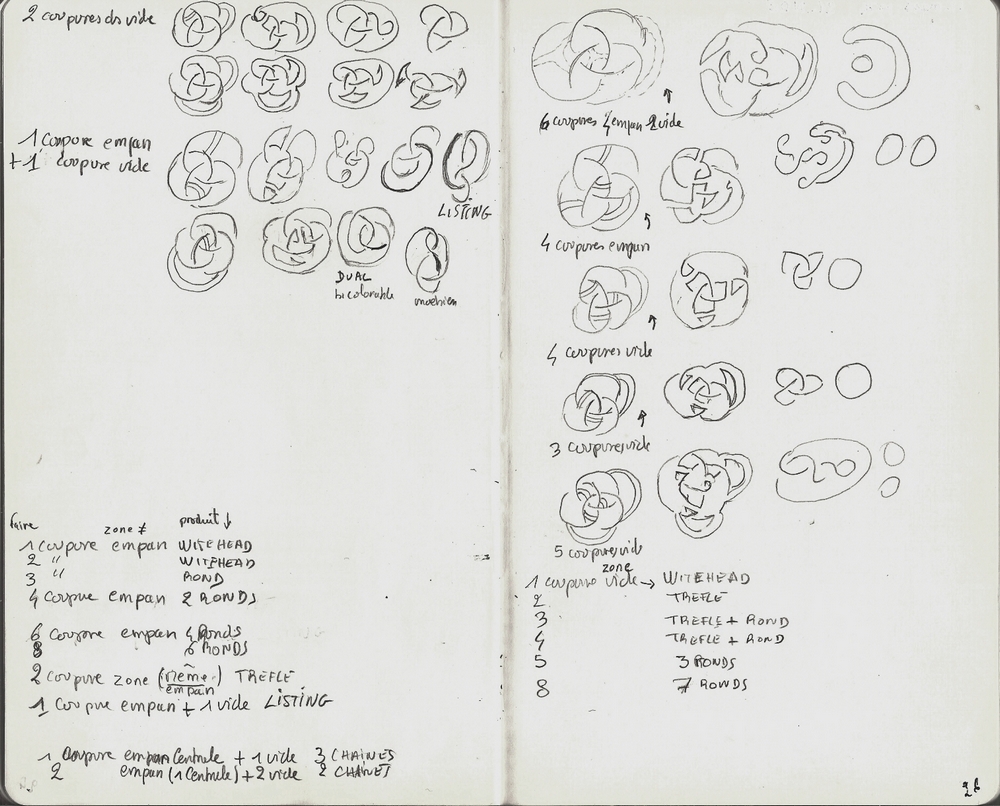 2 coupures ds vide
1 coupure empan
+ 1 coupure vide
LISTING
DUAL
bicolorable
moebien
faire
zone ≠ produit ↓
1 coupure empan WITEHEAD
2 " WITEHEAD
3 " ROND
4 coupure empan 2 RONDS
6 coupure empan 4 Ronds
8 6 RONDS
2 coupure zone (même empan) TREFLE
1 coupure empan + 1 vide LISTING
1 coupure empan Centrale + 1 vide 3 CHAINES
2 empan (1 Centrale) + 2 vide 2 CHAINES
6 coupures 4 empan 2 vide
4 coupures empan
4 coupures vide
3 coupures vide
5 coupure vide
zone
1 coupure vide → WITEHEAD
2 TREFLE
3 TREFLE + ROND
4 TREFLE + ROND
5 3 RONDS
8 7 RONDS